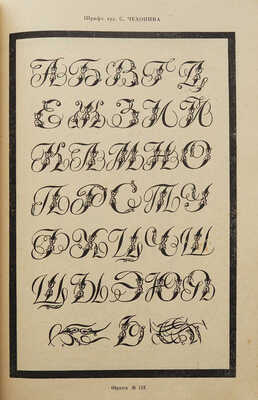 Шрифт худ. С. ЧЕХОНИНА
А Б В Г Д
Е Ж З И Й
К Л М Н О
П Р С Т У
Ф Х Ц Ч Ш
Щ Ы Э Ю Я
Ь
Образец №